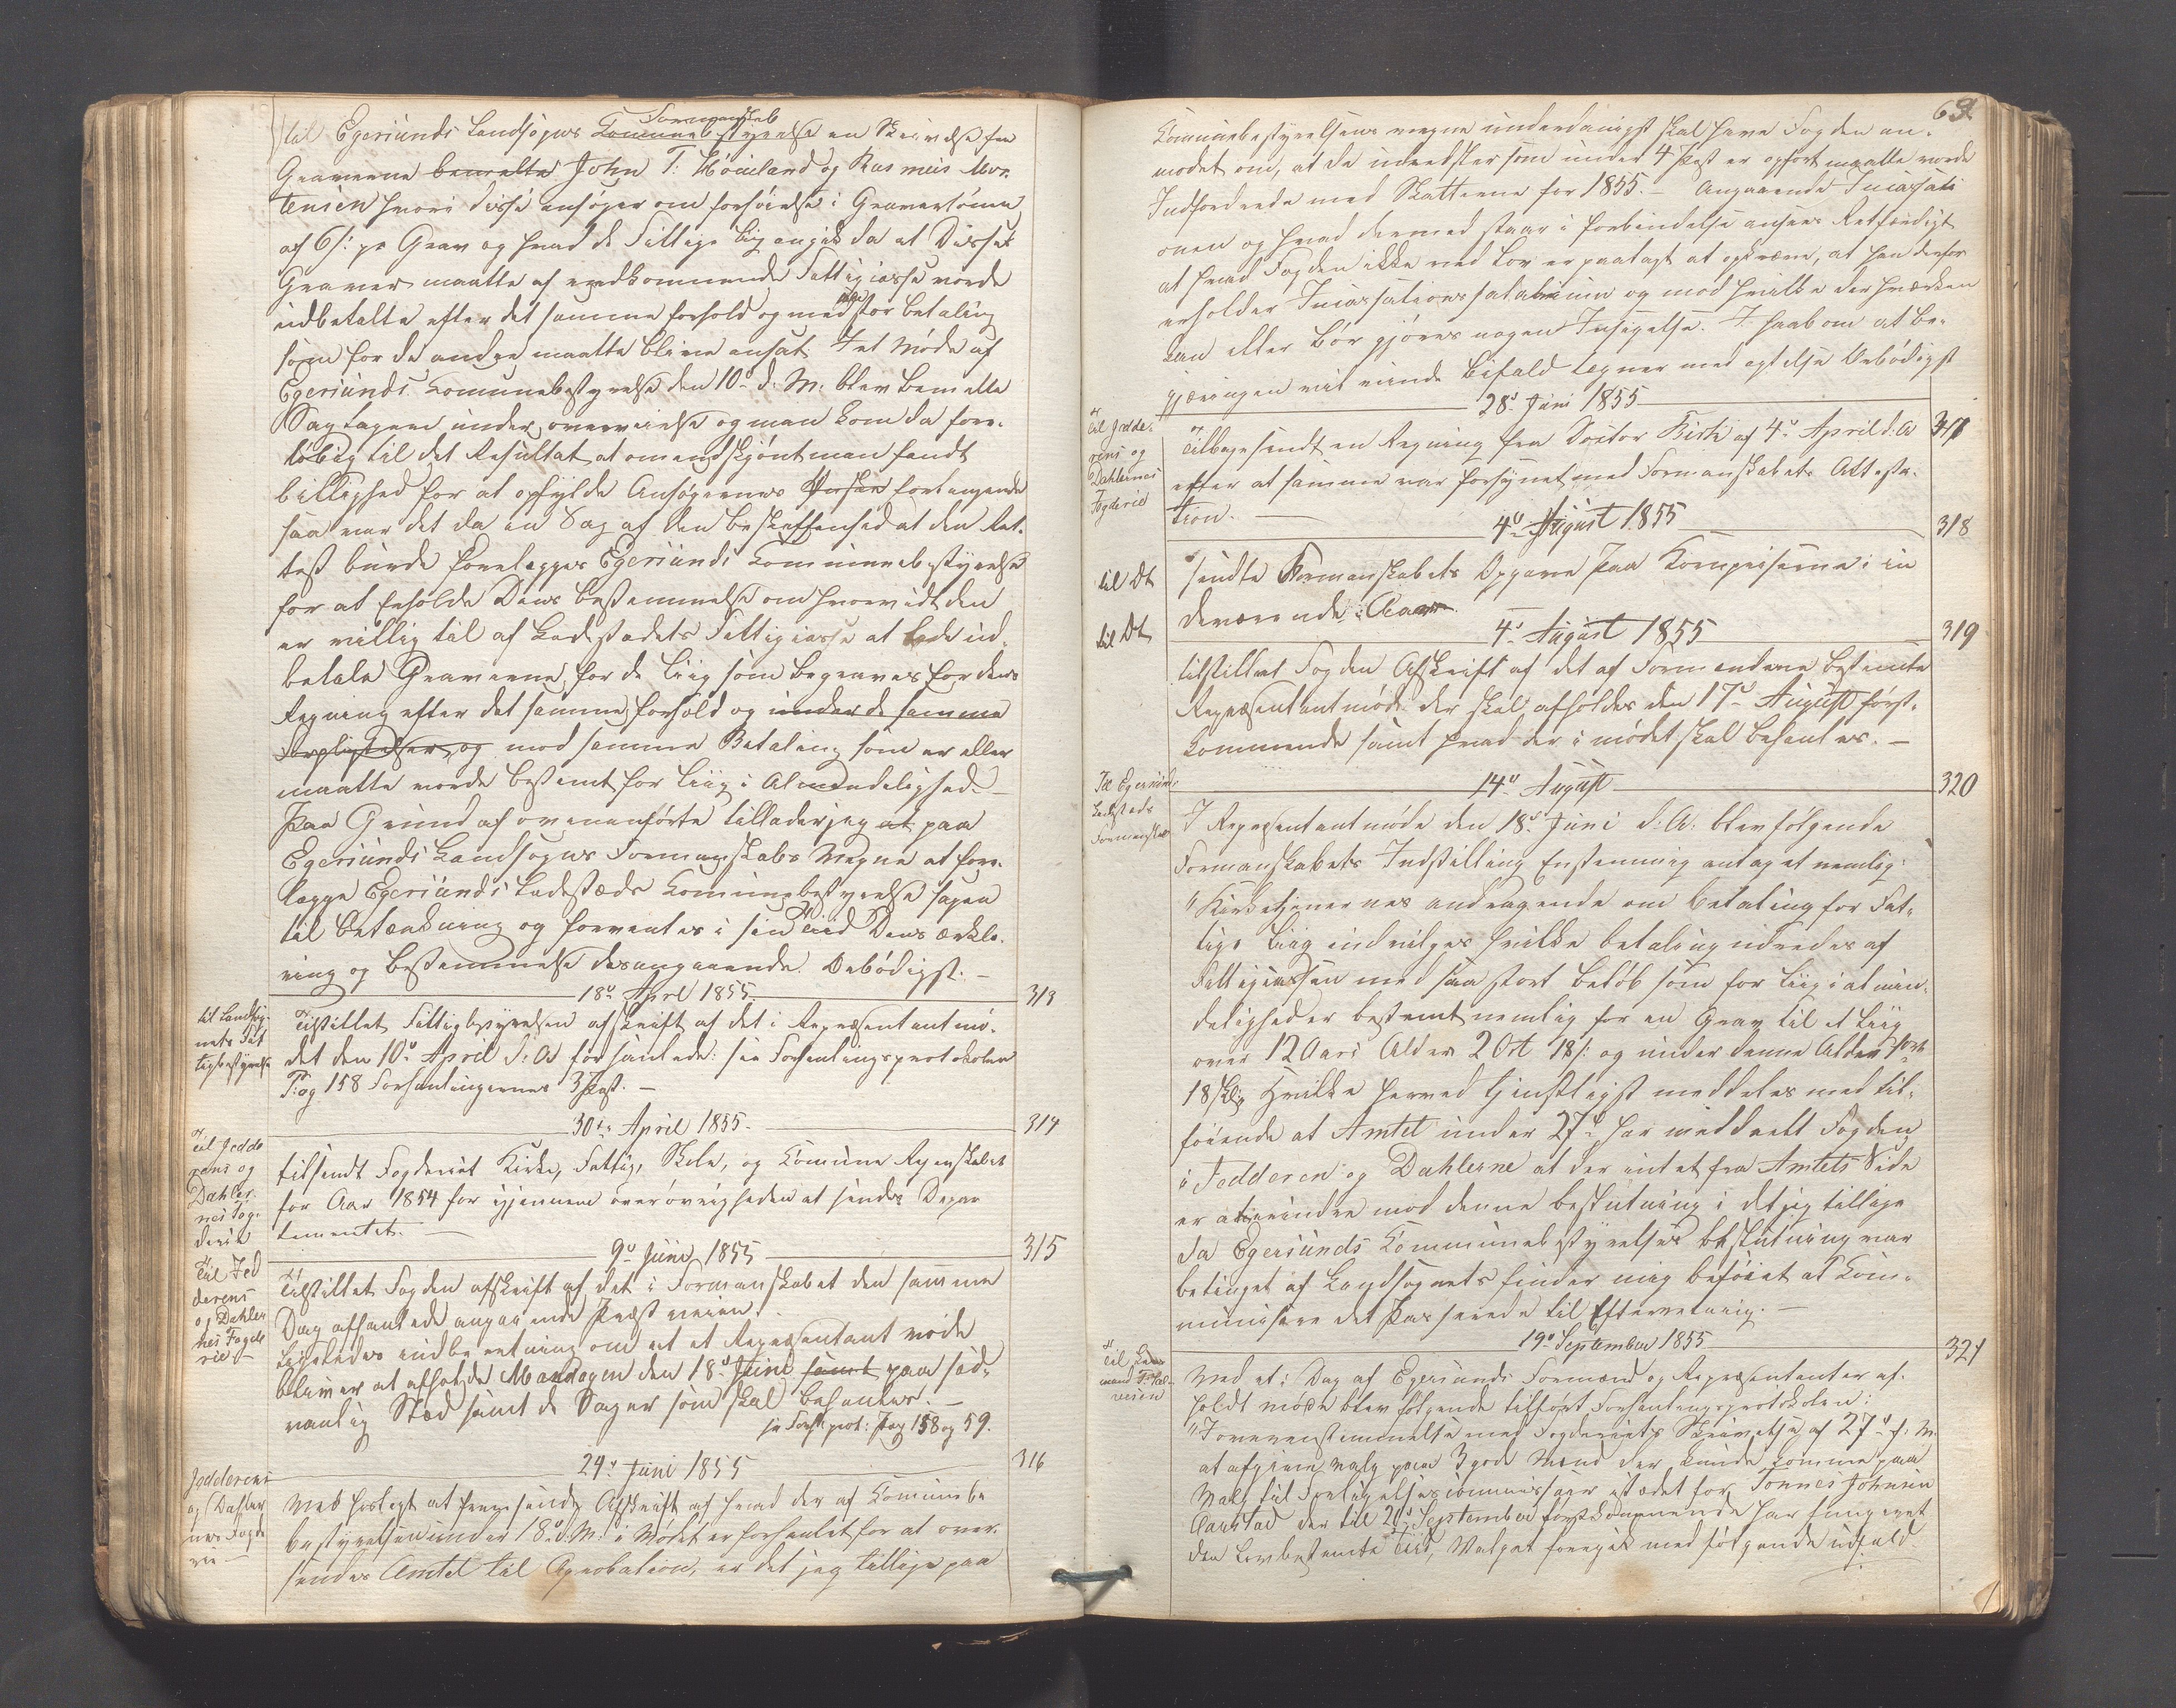 til Egersunds Landsogns Formandskab Communebestyrelse en Skrivelse fra
Graverne bemelte John T: Höiland og Rasmus Mor-
tensen hvori disse ansøger om forhöielse i Graverlönnen
af 6/: pr Grav og hvad de Fattige Liig angik da at Disses
Graver maatte af vedkommende Fattigkasse vorde
udbetalte efter det samme forhold og med slig stor betaling
som for de andre maatte blive ansat. I et Møde af
Egersunds Communebestyrelse den 10de d. M. blev bemelte
Sag tagen under overveielse og man kom da fore-
löbig til det Resultat at omendskjönt man fandt
billighed for at opfylde Ansögernes Ønsker forlangende
saa var det da en Sag af den beskaffenhed at den Ret-
test burde forelægges Egersunds Communebestyrelse
for at erholde Dens bestemmelse om hvorvidt den
er villig til af Ladestedets Fattigkasse at lade ud-
betale Graverne for de Liig som begraves for dens
Regning efter det samme forhold og under de samme
Forpligtelser, og mod samme Betaling som er eller
maatte vorde bestemt for Liig i Almindelighed. –
Paa Grund af ovenanførte tillader jeg at paa
Egersunds Landsogns Formandskabs Vegne at fore-
lægge Egersunds Ladesteds Communebestyrelse sagen
til betænkning og forventes i sin Tid Dens erklæ-
ring og bestemmelse desangaaende. Ærbödigst. –
18de April 1855. 313
til Landsog-
nets Fat
tigbestyrelse
Tilstillet Fattigbestyrelsen afskrift af det i Repræsentantmö-
det den 10de April d: A: forhandlede: see Forhandlingsprotokolen
Pag 158 Forhandlingernes 3 Post. –
30te April 1855. 314
Til Jedde
rens og
Dahler
nes Fog-
derie
tilsendt Fogderiet Kirke, Fattig, Skole, og Commune Regnskabet
for Aar 1854 for igjennem överövrigheden at sendes Depar
tementet. –
9de Juni 1855 315
Til Jed
derens
og Dahler
nes Fogde
rie –
Tilstillet Fogden afskrift af det i Formandskabet den samme
Dag afhandlede angaaende Præsteveien.
Ligeledes indberetning om at et Repræsentant möde
bliver at afholde Mandagen den 18de Juni samt paa sæd-
vanlig Sted samt de Sager som skal behandles. –
se Forh. prot: Pag 158 og 59.
24de Juni 1855 316
Jedderens
og Dahler
nes Fogde
rie –
Med hoslagt at fremsende Afskrift af hvad der af Communebe
bestyrelsen under 18de d. M. i Mødet er forhandlet for at over-
sendes Amtet til Aprobation, er det jeg tillige paa
69
Communebestyrelsens vegne underdanigst skal have Fogden an-
modet om, at de udredsler som under 4 Post er opfört maatte vorde
Indfordrede med Skatterne for 1855. – Angaaende Incassati
onen og hvad dermed staar i forbindelse ansees Retfærdigt
at hvad Fogden ikke ved Lov er paalagt at opkræve, at han derfor
erholder Incassationssalarium og mod hvilke der hverken
kan eller bör gjöres nogen Indsigelse. I haab om at be-
gjæringen vil vinde bifald tegner med agtelse Ærbödigst
28de Juni 1855
Til Jedde-
rens og
Dahlernes
Fogderie
Tilbagesendt en Regning fra Doctor Kirk af 4de April d: A 317
efter at samme var forsynet med Formandskabets Attesta-
tion. –
4de August 1855 318
til Dt sendte Formandskabets Opgave paa Kornpriserne i in
deværende Aar.
4de August 1855 319
til Dt
tilstillet Fogden Afskrift af det af Formændene bestemte
Repræsentantmöde der skal afholdes den 17de August först-
kommende samt hvad der i mödet skal behandles. –
14de August 320
Til Egersunds
Ladesteds
Formandskab
I Repræsentantmöde den 18de Juni d: A. blev fölgende
Formandskabets Indstilling Enstemmig antaget nemlig:
"Kirketjenernes andragende om betaling for Fat-
tige Liig indvilges hvilke betaling udredes af
Fattigkassen med saa stort belöb som for Liig i almin-
delighed er bestemt nemlig for en Grav til et Liig
over 12 Aars Alder 2 Ort 18/: og under denne Alder 1 Ort
18 skl; Hvilke herved tjenstligst meddeles med til-
föiende at Amtet under 27de har meddeelt Fogden
i Jedderen og Dahlerne at der intet fra Amtets Side
er at erindre mod denne beslutning i det jeg tillige
da Egersunds Communebestyrelses beslutning var
betinget af Landsognets finder mig beföiet at Com-
municere det Passerede til Efterretning. –
19de September 1855 321
Til Lens
mand
Med et i Dag af Egersunds Formænd og Repræsentanter af-
holdt möde blev fölgende tilfört Forhandlingsprotokolen:
"I overensstemmelse med Fogderiets Skrivelse af 27de f. M.
at afgive valg paa 3 gode Mænd der kunde komme paa
Valg til Forligelsescommissair istedet for Tönnes Johnsen
Aarstad der til 20de September förstkommende har fungeret
den Lovbestemte Tid, Valget foregik med fölgende udfald